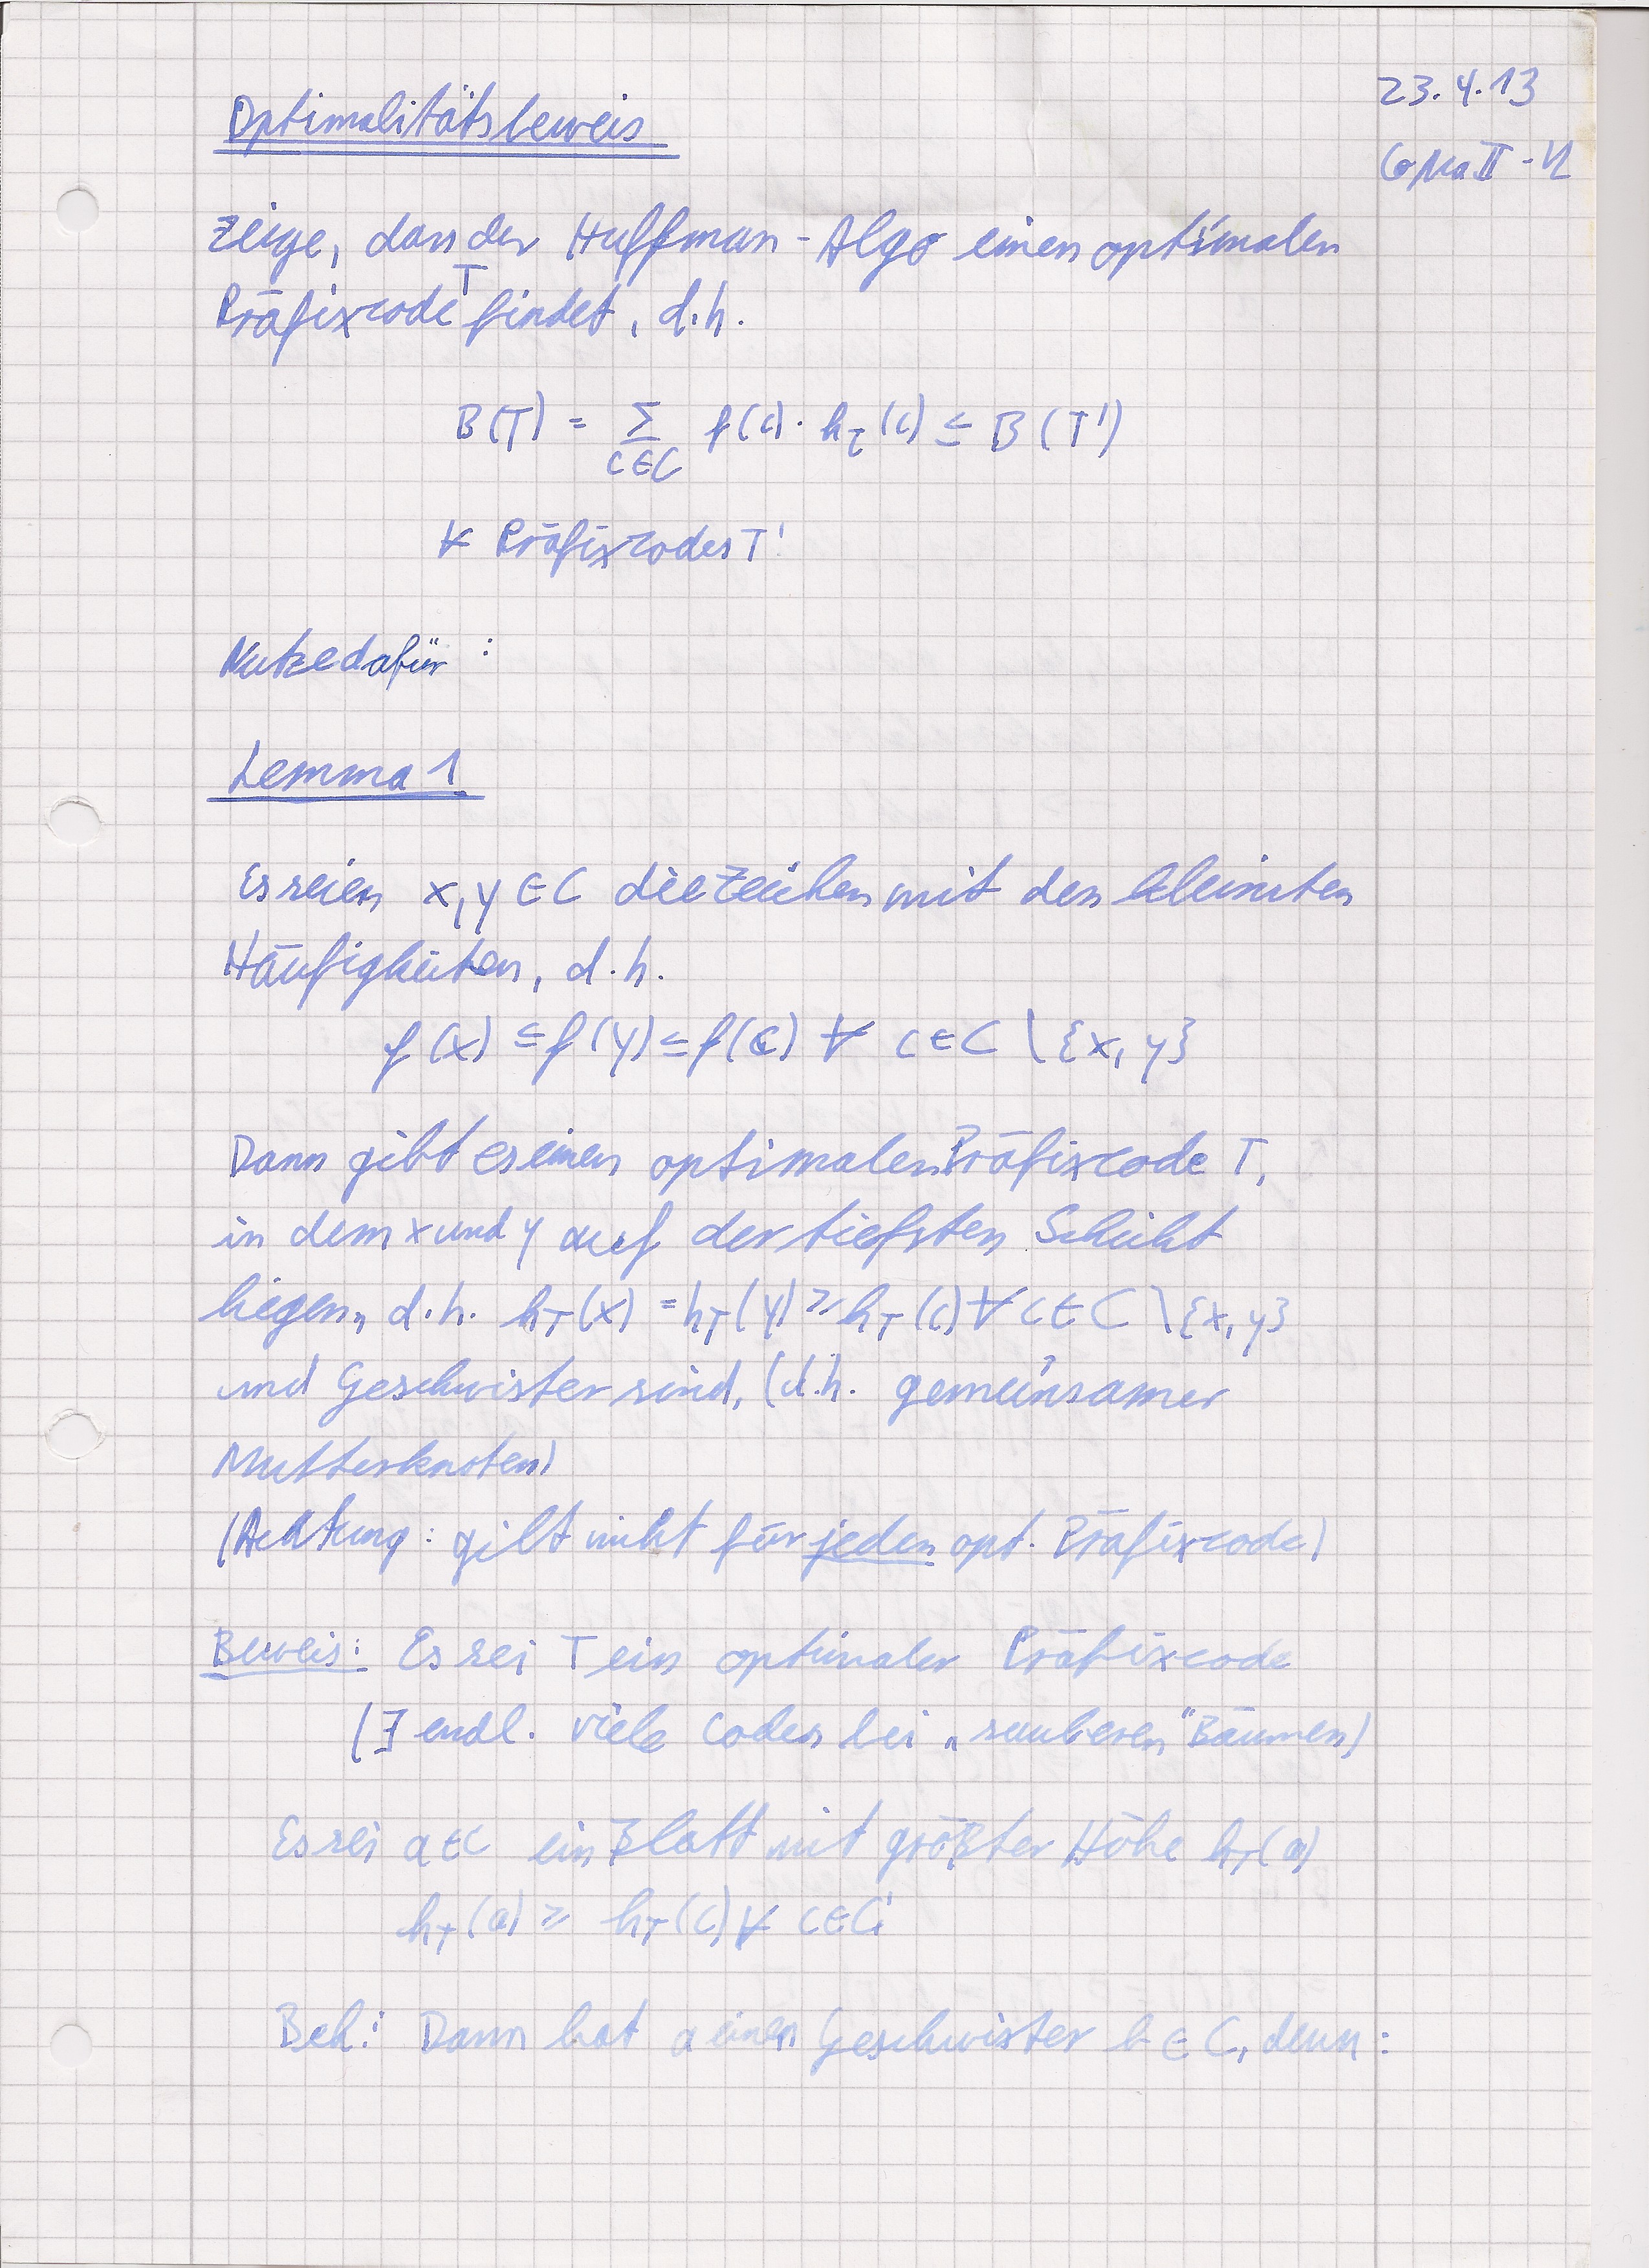 23.4.13
Optimalitätsbeweis
CoMa II - VL
Zeige, dass der Huffman-Algo einen optimalen
Präfixcode T findet, d.h.
B(T) = Σ f(c) · h_T(c) ≤ B(T')
c∈C
∀ Präfixcodes T'
Nutze dafür :
Lemma 1
Es seien x,y ∈ C die Zeichen mit den kleinsten
Häufigkeiten, d.h.
f(x) ≤ f(y) ≤ f(c) ∀ c∈C \ {x, y}
Dann gibt es einen optimalen Präfixcode T,
in dem x und y auf der tiefsten Schicht
liegen, d.h. h_T(x) = h_T(y) ≥ h_T(c) ∀ c∈C \ {x, y}
und Geschwister sind, (d.h. gemeinsamer
Mutterknoten)
(Achtung: gilt nicht für jeden opt. Präfixcode)
Beweis: Es sei T ein optimaler Präfixcode
(∃ endl. viele Codes bei „sauberen" Bäumen)
Es sei a∈C ein Blatt mit größter Höhe h_T(a)
h_T(a) ≥ h_T(c) ∀ c∈C
Beh.: Dann hat a einen Geschwister b ∈ C, denn: